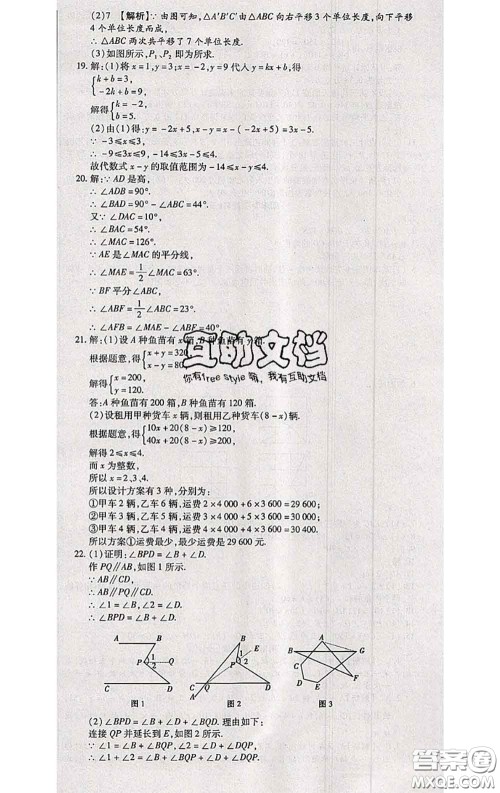 (2)7 【解析】∵由图可知,△A′B′C′由△ABC向右平移3个单位长度,向下平移
4个单位长度而成,
∴△ABC两次共平移了7个单位长度.
(3)如图所示,P₁、P₂即为所求.
19.解:(1)将x=1,y=3;x=-2,y=9代入y=kx+b,得
{k+b=3,
-2k+b=9,
解得{k=-2,
b=5.
(2)由(1)得:y=-2x+5,x-y=x-(-2x+5)=3x-5.
∵-3≤x≤3,
∴-9≤3x≤9,-14≤3x-5≤4.
故代数式x-y的取值范围为-14≤x-y≤4.
20.解:∵AD是高,
∴∠ADB=90°.
∴∠BAD=90°-∠ABC=44°.
又∵∠DAC=10°,
∴∠BAC=54°.
∴∠MAC=126°.
∵AE是∠MAC的平分线,
∴∠MAE=1/2∠MAC=63°.
∵BF平分∠ABC,
∴∠ABF=1/2∠ABC=23°.
∴∠AFB=∠MAE-∠ABF=40°.
21.解:(1)设A种鱼苗有x箱,B种鱼苗有y箱.
根据题意,得{x+y=320,
x-y=80
解得{x=200,
y=120.
答:A种鱼苗有200箱,B种鱼苗有120箱.
(2)设租用甲种货车x辆,则租用乙种货车(8-x)辆.
根据题意,得{10x+20(8-x)≥120,
40x+20(8-x)≥200.
解得2≤x≤4.
而x为整数,
所以x=2、3、4.
所以设计方案有3种,分别为:
①甲车2辆,乙车6辆,运费2×4 000+6×3 600=29 600;
②甲车3辆,乙车5辆,运费3×4 000+5×3 600=30 000;
③甲车4辆,乙车4辆,运费4×4 000+4×3 600=30 400.
所以方案①运费最少,最少运费是29 600元.
22.(1)证明:∠BPD=∠B+∠D.
作PQ∥AB,如图1所示.
∵AB∥CD,
∴AB∥PQ∥CD.
∴∠1=∠B,∠2=∠D.
∴∠BPD=∠B+∠D.
A B P 1 2 Q C D
图1
B E P 1 2 A C Q D
图2
A B G C D E F
图3
(2)∠BPD=∠B+∠D+∠BQD.理由如下:
连接QP并延长到E,如图2所示.
∵∠1=∠B+∠BQP,∠2=∠D+∠DQP,
∴∠1+∠2=∠B+∠BQP+∠D+∠DQP.
互助文档
你有free style嘛,我有互助文档
答案圈
MXQE.COM